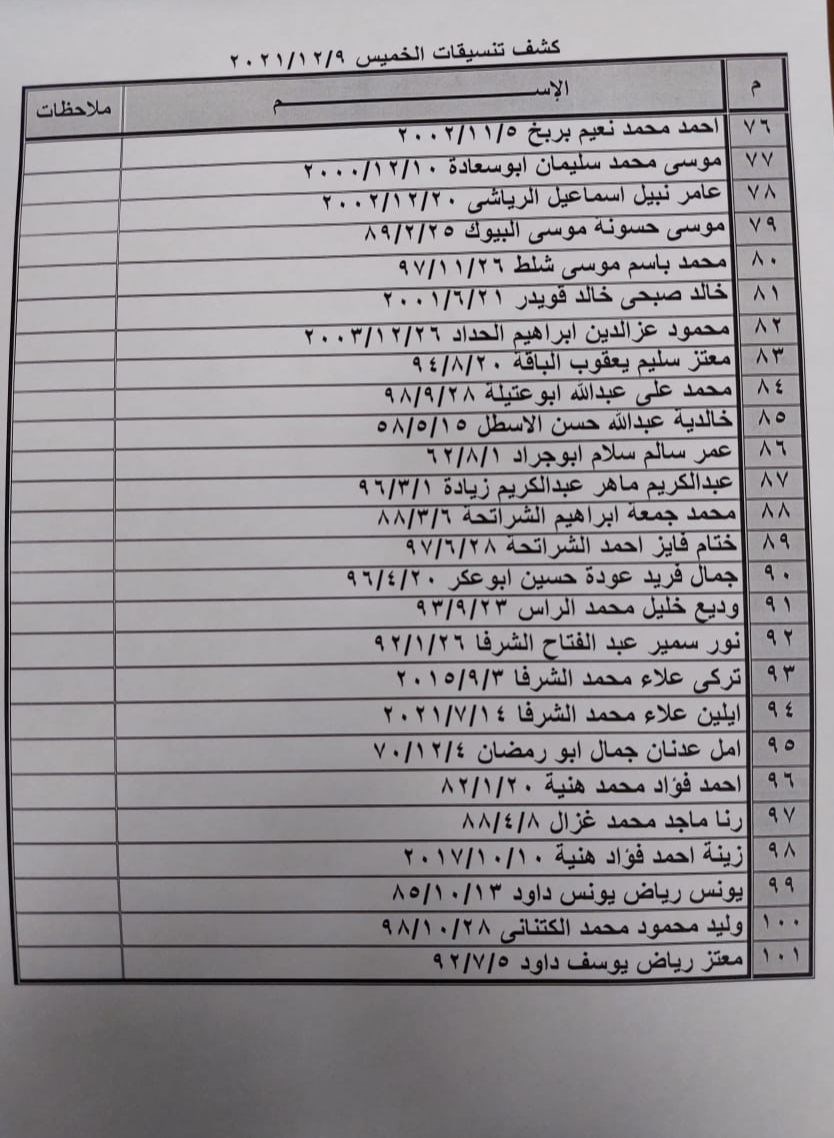 كشف تنسيقات الخميس ٢٠٢١/١٢/٩
م الإســـــــــم ملاحظات
٧٦ احمد محمد نعيم بربخ ٢٠٠٢/١١/٥
٧٧ موسى محمد سليمان ابوسعادة ٢٠٠٠/١٢/١٠
٧٨ عامر نبيل اسماعيل الرياشى ٢٠٠٢/١٢/٢٠
٧٩ موسى حسونة موسى البيوك ٨٩/٢/٢٥
٨٠ محمد باسم موسى شلط ٩٧/١١/٢٦
٨١ خالد صبحى خالد قويدر ٢٠٠١/٦/٢١
٨٢ محمود عزالدين ابراهيم الحداد ٢٠٠٣/١٢/٢٦
٨٣ معتز سليم يعقوب الباقة ٩٤/٨/٢٠
٨٤ محمد على عبدالله ابوعتيلة ٩٨/٩/٢٨
٨٥ خالدية عبدالله حسن الاسطل ٥٨/٥/١٥
٨٦ عمر سالم سلام ابوجراد ٦٢/٨/١
٨٧ عبدالكريم ماهر عبدالكريم زيادة ٩٦/٣/١
٨٨ محمد جمعة ابراهيم الشراتحة ٨٨/٣/٦
٨٩ ختام فايز احمد الشراتحة ٩٧/٦/٢٨
٩٠ جمال فريد عودة حسين ابوعكر ٩٦/٤/٢٠
٩١ وديع خليل محمد الراس ٩٣/٩/٢٣
٩٢ نور سمير عبد الفتاح الشرفا ٩٢/١/٢٦
٩٣ تركى علاء محمد الشرفا ٢٠١٥/٩/٣
٩٤ ايلين علاء محمد الشرفا ٢٠٢١/٧/١٤
٩٥ امل عدنان جمال ابو رمضان ٧٠/١٢/٤
٩٦ احمد فؤاد محمد هنية ٨٢/١/٢٠
٩٧ رنا ماجد محمد غزال ٨٨/٤/٨
٩٨ زينة احمد فؤاد هنية ٢٠١٧/١٠/١٠
٩٩ يونس رياض يونس داود ٨٥/١٠/١٣
١٠٠ وليد محمود محمد الكتنانى ٩٨/١٠/٢٨
١٠١ معتز رياض يوسف داود ٩٢/٧/٥